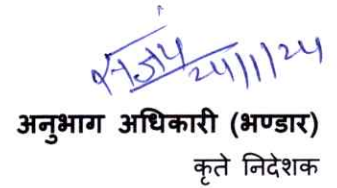 24/1/24
अनुभाग अधिकारी (भण्डार)
कृते निदेशक